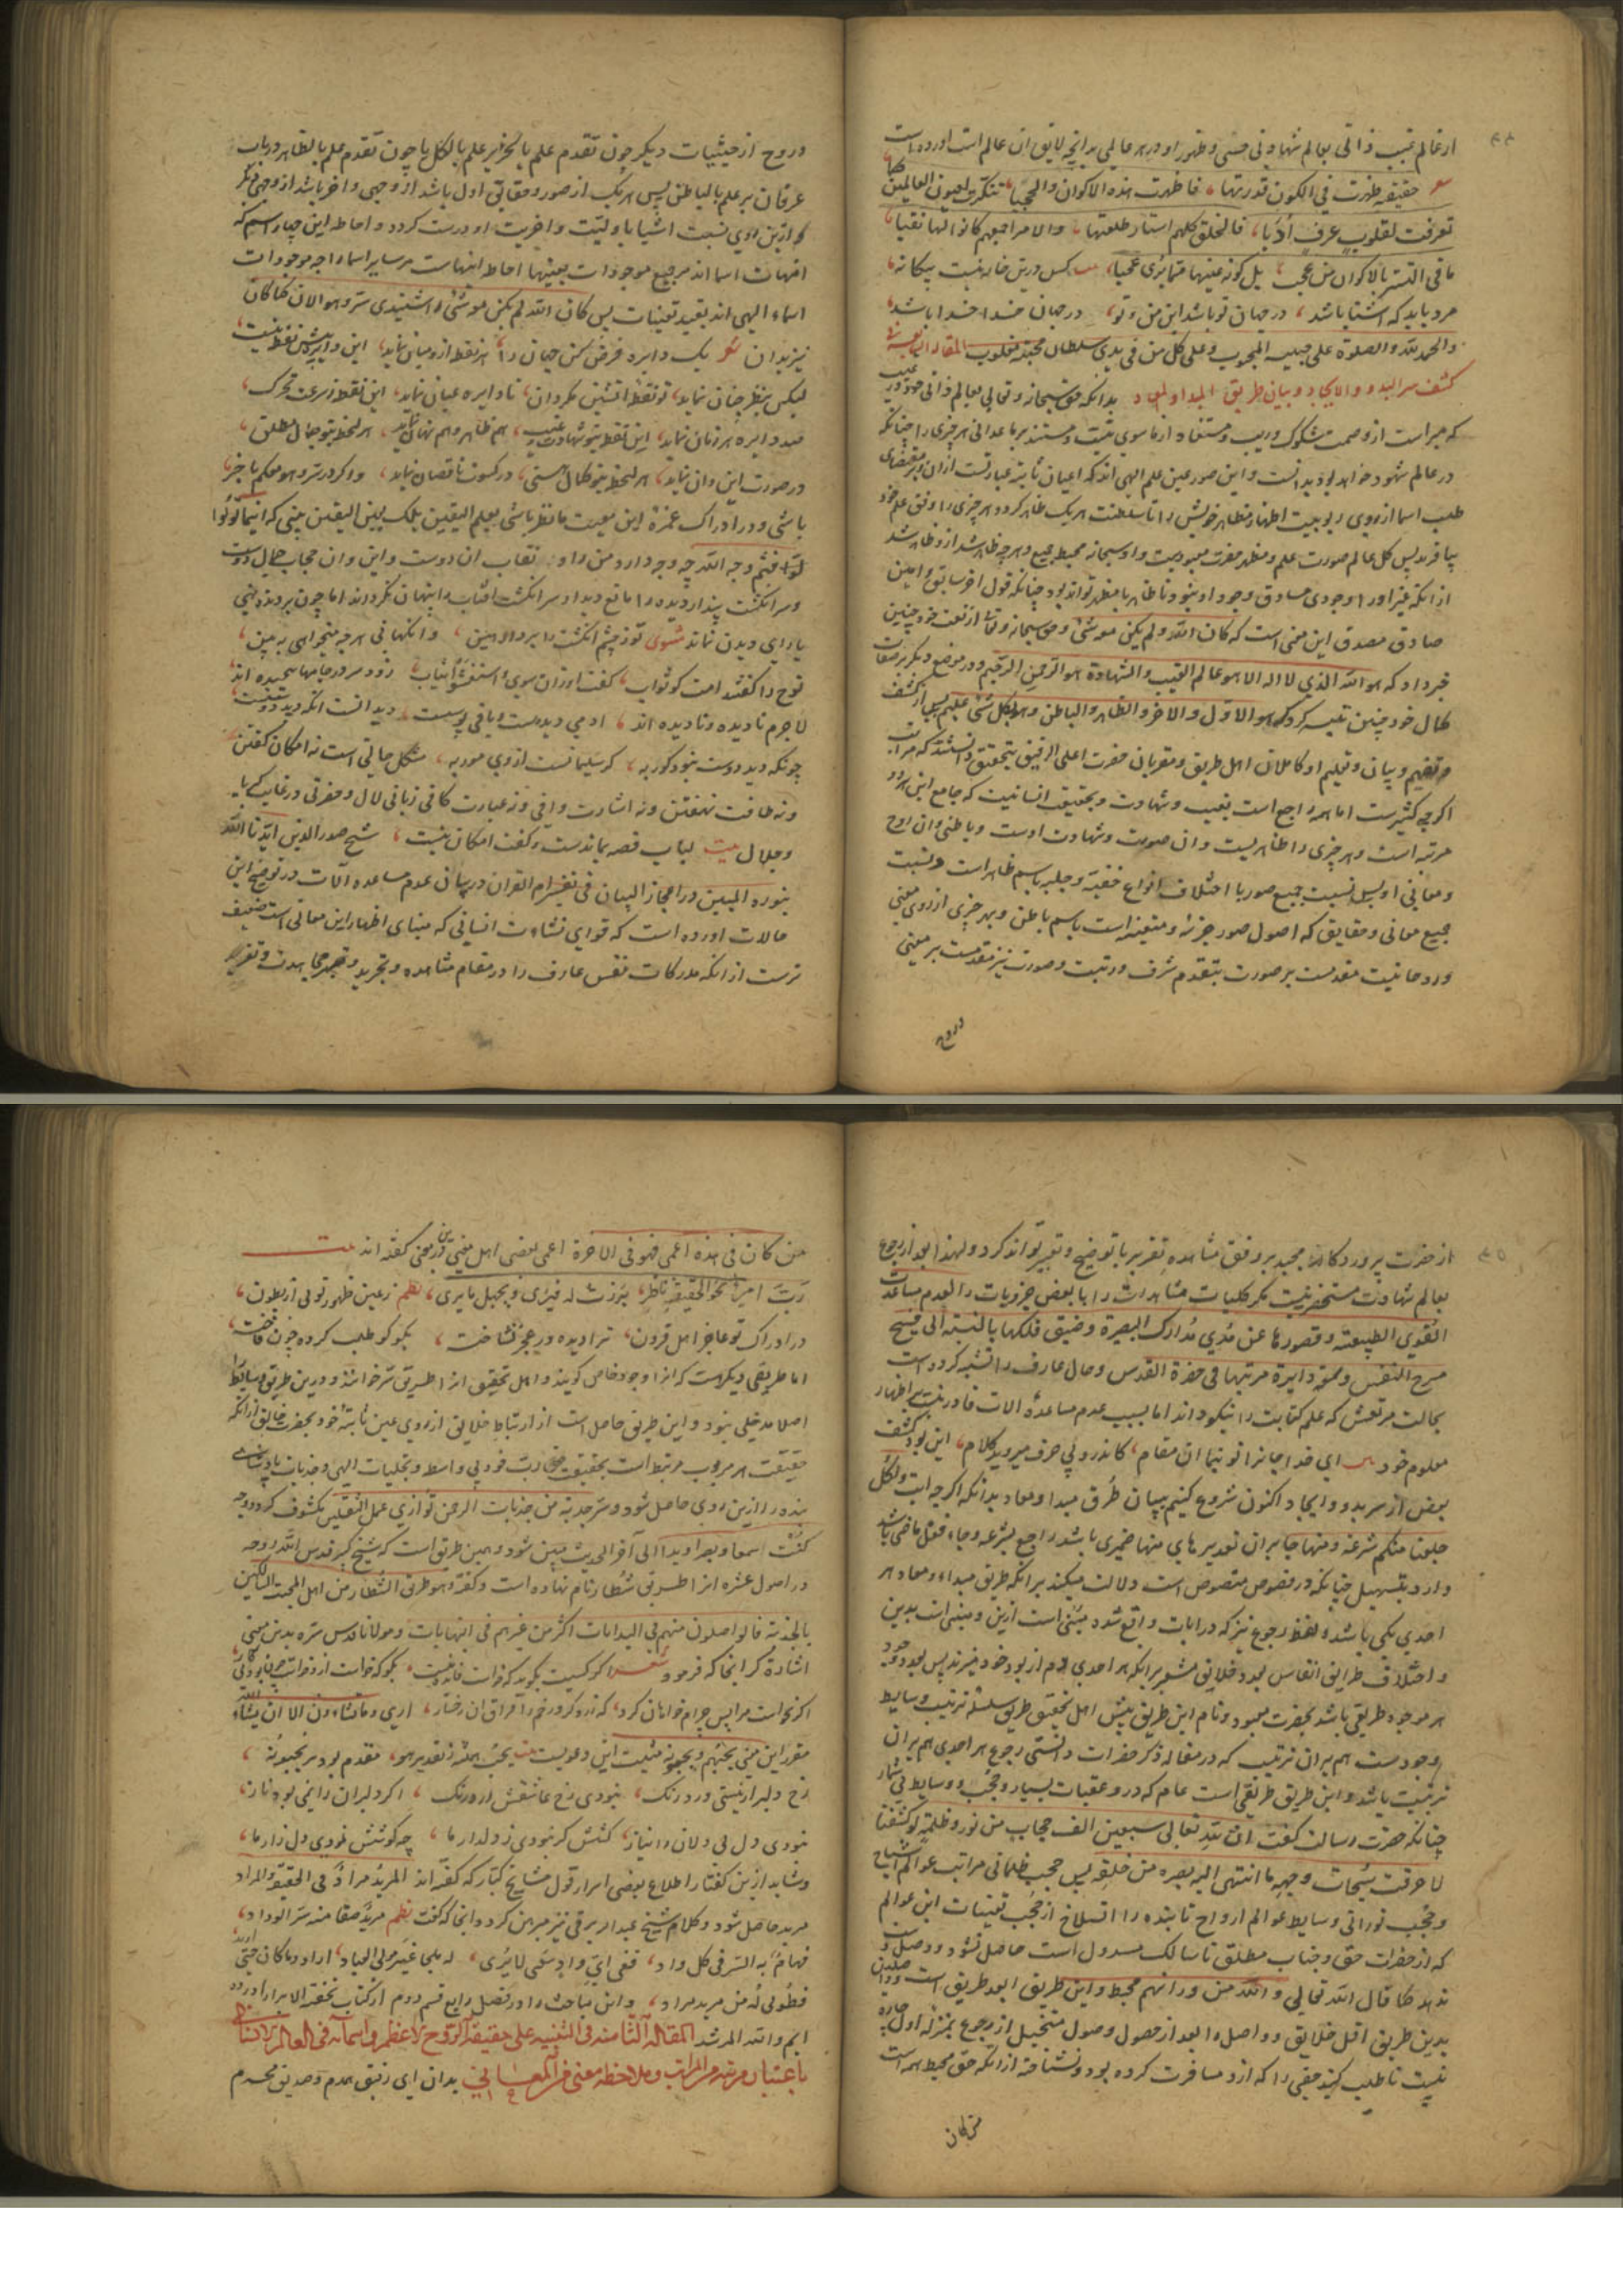 از عالم غیب ذاتی بعالم شهادتی حسی و ظهور او در هر عالمی بدانچه لایق ان عالم است اورده است
حقیقة ظهرت فی الکون قدرتها فاظهرت هذه الاکوان والحجبا تنکرت لعیون العالمین کما
تعرفت لقلوب عرف أدبا فالخلق کلهم استار طلعتها والامر اجمعهم کانوا لها نقبا
ما فی التستر بالاکوان من عجب بل کونه عینها مما یری عجبا کس درین خانه نیست بیکانه
مرد باید که اشنا باشد در جهان تو باشد این من و تو در جهان خدا خدا باشد
والحمد لله والصلوة علی حبیبه المحبوب وعلی کل من فی یدی سلطان محبته مغلوب المقالة السابعة فی
کشف سر البدو والایجاد و بیان طریق المبدا والمعاد بدانکه حق سبحانه وتعالی بعالم ذاتی خود در غیب
که مبراست از وصمت شکوک و ریب و مستفاد از ما سوی نیست و مستند برما عدا نی هر چیزی را چنانکه
در عالم شهود خواهد بود بدانست و این صور عین علم الهی اند که اعیان ثابته عبارتست ازان و بر مقتضای
طلب اسما از روی ربوبیت اظهار مظاهر خویش را تا سلطنت هر یک ظاهر کردد هر چیزی را وفق علم خود
بیافرید پس کل عالم صورت علم و مظهر حضرت معبودیت و او سبحانه محیط جمیع و هر چه ظاهر شد ازو ظاهر شد
ازانکه غیر او را وجودی صادق وجود او نبود و ناظاهر نا مظهر تواند بود چنانکه قول اخر سابق و امین
صادق مصدق این معنی است که کان الله ولم یکن معه شئ و حق سبحانه وتعالی از نعت خود چنین
خبر داد که هو الله الذی لا اله الا هو عالم الغیب والشهادة هو الرحمن الرحیم و در موضع دیکر بر صفات
کمال خود چنین تنبیه کرد که هو الاول والاخر والظاهر والباطن وهو بکل شئ علیم پس از کشف
و تفهیم و بیان و تعلیم او کاملان اهل طریق و مقربان حضرت اعلی الرفیق بتحقیق دانستند که مراتب
اکرچه کثیرست اما همه راجع است بغیب و شهادت و بحقیقت انسانیت که جامع این هر دو
مرتبه است و هر چیزی را ظاهریست وان صورت و شهادت اوست و باطنی وان روح
و معانی او پس نسبت جمیع صور با اختلاف انواع خفیة وجلیه باسم ظاهر است و نسبت
جمیع معانی و حقایق که اصول صور جزئه و متعینه است باسم باطن و هر چیزی از روی معنی
و روحانیت مقدمست بر صورت بتقدم شرف و رتبت و صورت نیز مقدمست بر معنی
و روح
و روح از حیثیات دیکر چون تقدم علم بالجزء بر علم بالکل یا چون تقدم علم بالظاهر در باب
عرفان بر علم بالباطن پس هر یک از صور و حقایق اول باشد از وجهی واخر باشد از وجهی دیکر
و ازین روی نسبت اشیا باولیت واخریت او درست کردد و احاطه این چهار اسم که
امهات اسما اند بر جمیع موجودات بعینها احاطه اینهاست بر سایر اسما را چه موجودات
اسماء الهی اند بقید تعینات پس کان الله لم یکن معه شئ را شنیدی سر وهو الان کما کان
نیز بدان شعر یک دایره فرض کن جهان را هر نقطه ازو میان نماید این دایره بیش نقطه نیست
لیکن بنظر چنان نماید تو نقطه اتشین بکردان تا دایره عیان نماید این نقطه ز سرعت تحرک
صد دایره هر زمان نماید این نقطه بتو شهادت و غیب هم ظاهر و هم نهان نماید هر لحظه بتو جمال مطلق
در صورت این وان نماید هر لحظه بتو کمال هستی در کسوت ناقصان نماید و اکر در سر وهو معکم باخبر
باشی و در ادراک غمزه این معیت ما نظر باشی بعلم الیقین بلک بعین الیقین بینی که اینما تولوا
فثم وجه الله چه وجه دارد من و او نقاب ان دوست و این وان حجاب جمال دوست
و سر انکشت پندار دیده را مانع دیدار سر انکشت افتاب را پنهان نکرداند اما چون بر دیده نهی
یارای دیدن نماند مثنوی تو ز چشم انکشت را بردار هین وانکهانی هر چه میخواهی ببین
نوح را کفتند امت کو ثواب کفت او زان سوی و استغشوا ثیاب رو و سر در جامها پیچیده اند
لاجرم نادیده و نادیده اند ادمی دیدست و باقی پوستست دید انست انکه دید دوست
چونکه دید دوست نبود کور به کر سلیمانست از وی مور به مشکل حالتی است نه امکان کفتن
و نه طاقت نهفتن و نه اشارت وافی و نه عبارت کافی زبانی لال و حضرتی در غایت کبریا
و جلال بیت لباب قصه بماندست و کفت امکان نیست شیخ صدر الدین ایدنا الله
بنوره المبین در اعجاز البیان فی تفسیر ام القران در بیان عدم مساعده آلات در توضیح این
حالات اورده است که قوای نشاءت انسانی که مبنای اظهار این معانی است ضعیف
ترست ازانکه مدرکات نفس عارف را در مقام مشاهده و تجرید و قهر مجاهدت و تفرید
از حضرت پروردکار مجید بر وفق مشاهده تقریر با توضیح و تعبیر تواند کرد و لهذا بعد از رجوع
بعالم شهادت مستحضر نیست مکر کلیات مشاهدات را با بعض جزویات را لعدم مساعدت
القوی الطبیعیة و قصورها عن مدی مدارک البصیرة وضیق فلکها بالنسبة الی فسیح
مسرح النفس وسعة دایرة مرتبتها فی حضرة القدس و حال عارف را تشبیه کرده است
بحالت مرتعش که علم کتابت را نیکو داند اما بسبب عدم مساعدهٔ الات قادر نیست بر اظهار
معلوم خود ای خدا جان را تو بنما ان مقام کاندرو بی حرف میروید کلام این بود کشف
بعض از سر بدو و ایجاد اکنون شروع کنیم ببیان طرق مبدا و معاد بدانکه اکرچه ایت ولکل
جعلنا منکم شرعة ومنهاجا بران تقدیر های منها ضمیری باشد راجع بشرعه وجاء فعل ماضی باشد
وارد بتسهیل چنانکه در فصوص منصوص است دلالت میکند برانکه طریق مبداء و معاد هر
احدی یکی باشد و لفظ رجوع نیز که در ایات واقع شد مبنی است ازین و مبنی است بدین
و اختلاف طرایق انفاس بعدد خلایق مشعر برانکه هر احدی دم از بود خود میزند پس بعدد وجود
هر موجود طریقی باشد بحضرت معبود و نام این طریق پیش اهل تحقیق طریق سلسله ترتیب وسایط
وجودست هم بران ترتیب که در مقاله ذکر حضرات دانستی رجوع هر احدی هم بران
ترتیب باشد و این طریق طریقی است عام که در و عقبات بسیار و حجب و وسایط بی شمار
چنانکه حضرت رسالت کفت ان لله تعالی سبعین الف حجاب من نور وظلمة لو کشفها
لاحرقت سبحات وجهه ما انتهی الیه بصره من خلقه پس حجب ظلمانی مراتب عوالم اشباح
و حجب نورانی وسایط عوالم ارواح تا بنده را انسلاخ از حجب تعینات این عوالم
که از حضرات حق و جناب مطلق تا سالک مسدول است حاصل نشود و وصل
ندهد کما قال الله تعالی والله من ورائهم محیط و این طریق ابعد طریق است
بدین طریق اقل خلایق و واصل را بعد از حصول وصول متخیل از رجوع بمنزله اول چاره
نیست تا طلب کند حقی را که ازو مسافرت کرده بود و نشناخته ازانکه حق محیط همه است
من کان
من کان فی هذه اعمی فهو فی الاخرة اعمی بعضی اهل معنی درین معنی کفته اند بیت
رب امرئ نحو الحقیقة ناظر برزت له فیری ویجهل ما یری نظم ز عین ظهور تو نی از بطون
در ادراک تو عاجز اهل قرون ترا دیده و ز عجز نشناخت بکو کو طلب کرده چون فاخته
اما طریقی دیکر هست که انرا وجود خاص کویند و اهل تحقیق انرا طریق سر خوانند و درین طریق وسایط را
اصلا مدخلی نبود و این طریق حاصل است از ارتباط خلایق از روی عین ثابته خود بحضرت خالق ازانکه
حقیقت هر مربوب مرتبط است بحقیقت رب خود بی واسطه و تجلیات الهی و جذبات پادشاهی
بنده را ازین روی حاصل شود و سر جذبة من جذبات الرحمن توازی عمل الثقلین مکشوف کردد و رمز
کنت له سمعا وبصرا ویدا الی آخر الحدیث مبین شود و همین طریق است که شیخ کبیر قدس الله روحه
در اصول عشره انرا طریق شطار نام نهاده است و کفته وهو طریق الشطار من اهل المحبة السالکین
بالجذبة فالواصلون منهم فی البدایات اکثر من غیرهم فی النهایات و مولانا قدس سره بدین معنی
اشارة کرد انجا که فرمود شعر اکر کوییت بکوید که خواست فایده نیست بکو که خواست ازو خواست چون بود بیکار
اکر نخواست مرا پس چرام خواهان کرد که زرد کرد رخم را فراق ان رخسار اری وما تشاؤن الا ان یشاء الله
مقرر این معنی یحبهم ویحبونه مثبت این دعویست بیت یحب همه ز تقدیر هو مقدم بود بر یحبونه
رخ دلبر ار نیستی ورد رنک نبودی رخ عاشقش ارد رنک اکر دلبران را نمی بود ناز
نبودی دل بی دلان را نیاز کشش کر نبودی ز دلدار ما چه کوشش نمودی دل زار ما
و شاید ازین کفتار اطلاع بعضی اسرار قول مشایخ کبار که کفته اند المرید مراد فی الحقیقة والمراد
مرید حاصل شود و کلام شیخ عبد الرب برقی نیز مبرهن کردد انجا که کفت نظم مرید صفا منه سر الوداد
فهام به السر فی کل واد ففی ای واد سعی لا یری له ملجا غیر مولی العباد اراد وما کان حتی ارید
فطوبی له من مرید مراد و این مباحث را در فصل رابع قسم دوم از کتاب تحفة الابرار ایراد کرده
ایم والله المرشد المقالة الثامنة فی التنبیه علی حقیقة الروح الاعظم واسمائه فی العالم الانسانی
باعتبار مرتبة من المراتب وملاحظة معنی من المعانی بدان ای رفیق همدم و صدیق محرم